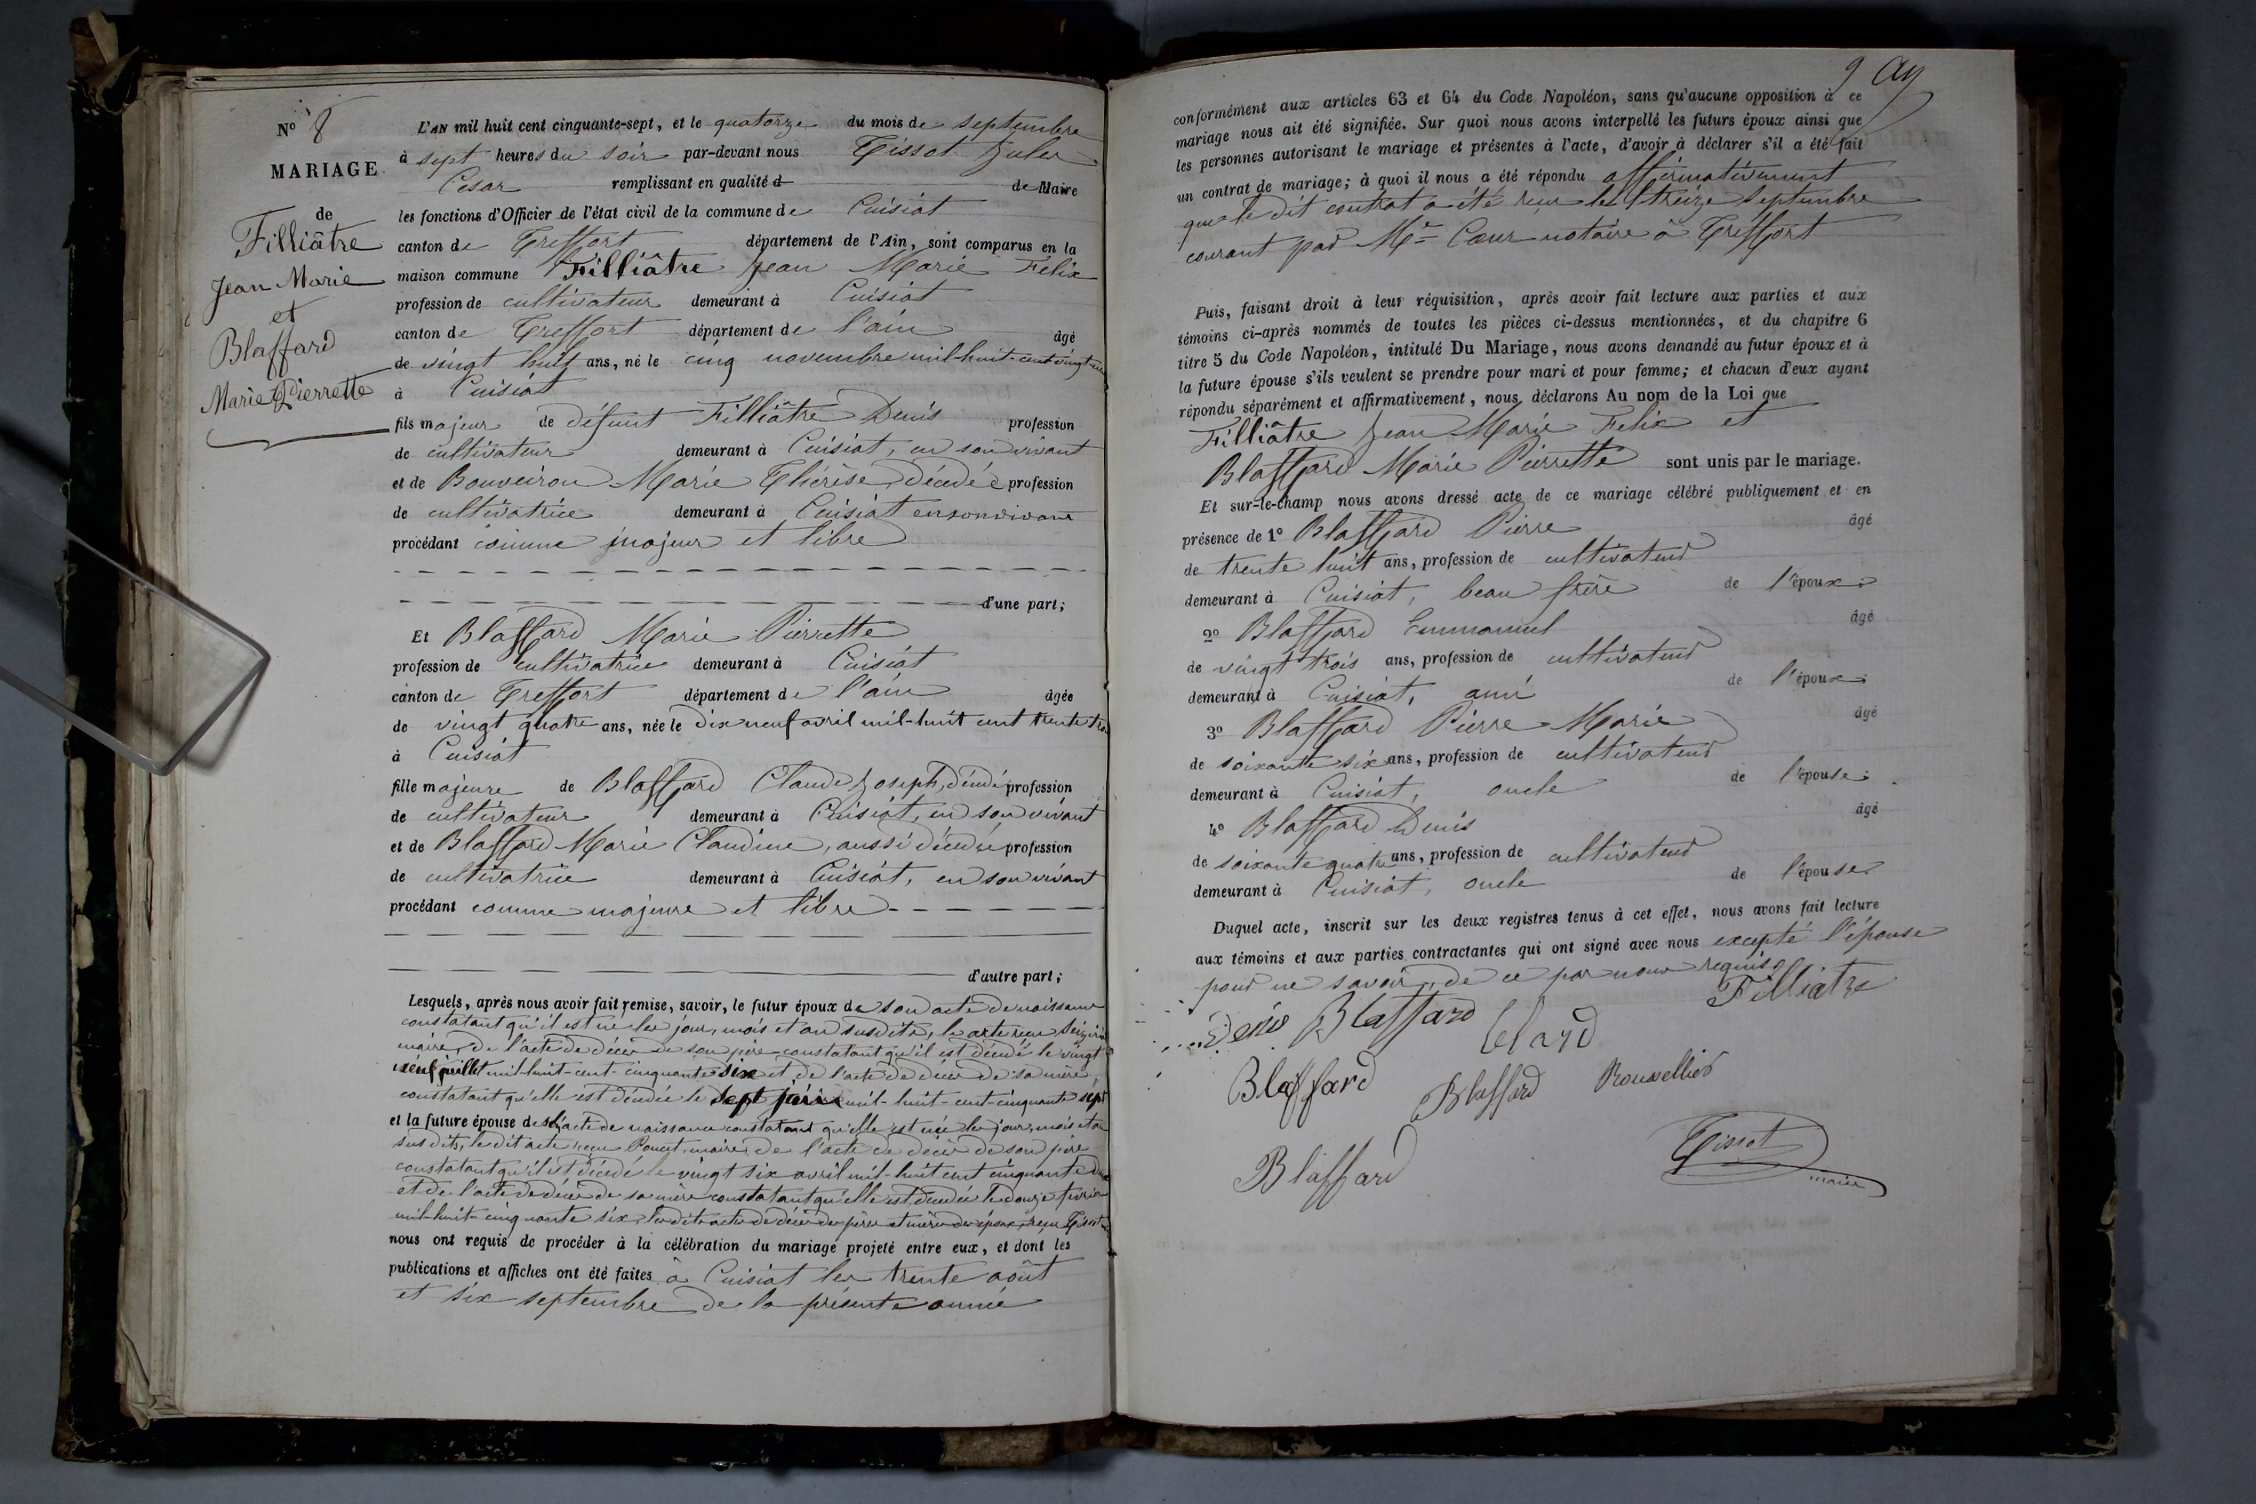 N° 8
MARIAGE
de
Filliâtre
Jean Marie
et
Blaffard
Marie Pierrette
L'AN mil huit cent cinquante-sept, et le quatorze du mois de septembre
à sept heures du soir par-devant nous Tissot Jules
César remplissant en qualité d de Maire
les fonctions d'Officier de l'état civil de la commune de Cuisiat
canton de Treffort département de l'Ain, sont comparus en la
maison commune Filliâtre Jean Marie Felix
profession de cultivateur demeurant à Cuisiat
canton de Treffort département de l'ain âgé
de vingt huit ans, né le cinq novembre mil-huit-cent vingt
à Cuisiat
fils majeur de défunt Filliâtre Denis profession
de cultivateur demeurant à Cuisiat, en son vivant
et de Bouveiron Marie Thérèse, décédée profession
de cultivatrice demeurant à Cuisiat en son vivant
procédant comme majeur et libre
d'une part;
Et Blaffard Marie Pierrette
profession de cultivatrice demeurant à Cuisiat
canton de Treffort département de l'ain âgée
de vingt quatre ans, née le dix neuf avril mil-huit cent trente tro
à Cuisiat
fille majeure de Blaffard Claude Joseph, décédé profession
de cultivateur demeurant à Cuisiat, en son vivant
et de Blaffard Marie Claudine, aussi décédée profession
de cultivatrice demeurant à Cuisiat, en son vivant
procédant comme majeure et libre
d'autre part;
Lesquels, après nous avoir fait remise, savoir, le futur époux de son acte de naissance
constatant qu'il est né les jour, mois et an susdits, le acte reçu
maire, de l'acte de décès de son père constatant qu'il est décédé le vingt
neuf juillet mil-huit-cent-cinquante six et de l'acte de décès de sa mère,
constatant qu'elle est décédée le sept juin mil-huit-cent-cinquante sept
et la future épouse de l'acte de naissance constatant qu'elle est née les jour, mois et an
susdits, le dit acte reçu Poncet maire, de l'acte de décès de son père
constatant qu'il est décédé le vingt six avril mil-huit cent cinquante
et de l'acte de décès de sa mère constatant qu'elle est décédée le douze février
mil-huit-cinquante six, les dits actes de décès des pères et mères des époux, reçu Tissot
nous ont requis de procéder à la célébration du mariage projeté entre eux, et dont les
publications et affiches ont été faites à Cuisiat les trente août
et six septembre de la présente année
9
conformément aux articles 63 et 64 du Code Napoléon, sans qu'aucune opposition à ce
mariage nous ait été signifiée. Sur quoi nous avons interpellé les futurs époux ainsi que
les personnes autorisant le mariage et présentes à l'acte, d'avoir à déclarer s'il a été fait
un contrat de mariage; à quoi il nous a été répondu affirmativement
que le dit contrat a été reçu le treize septembre
courant par Me Cœur notaire à Treffort
Puis, faisant droit à leur réquisition, après avoir fait lecture aux parties et aux
témoins ci-après nommés de toutes les pièces ci-dessus mentionnées, et du chapitre 6
titre 5 du Code Napoléon, intitulé Du Mariage, nous avons demandé au futur époux et à
la future épouse s'ils veulent se prendre pour mari et pour femme; et chacun d'eux ayant
répondu séparément et affirmativement, nous déclarons Au nom de la Loi que
Filliâtre Jean Marie Felix et
Blaffard Marie Pierrette sont unis par le mariage.
Et sur-le-champ nous avons dressé acte de ce mariage célébré publiquement et en
présence de 1° Blaffard Pierre âgé
de trente huit ans, profession de cultivateur
demeurant à Cuisiat, beau frère de l'époux.
2° Blaffard Emmanuel âgé
de vingt trois ans, profession de cultivateur
demeurant à Cuisiat, ami de l'époux.
3° Blaffard Pierre Marie âgé
de soixante six ans, profession de cultivateur
demeurant à Cuisiat, oncle de l'épouse.
4° Blaffard Denis âgé
de soixante quatre ans, profession de cultivateur
demeurant à Cuisiat, oncle de l'épouse
Duquel acte, inscrit sur les deux registres tenus à cet effet, nous avons fait lecture
aux témoins et aux parties contractantes qui ont signé avec nous excepté l'épouse
pour ne savoir, de ce par nous requise
Filliatre
Denis Blaffard
Blaffard
Blaffard
Blaffard
Tissot
maire